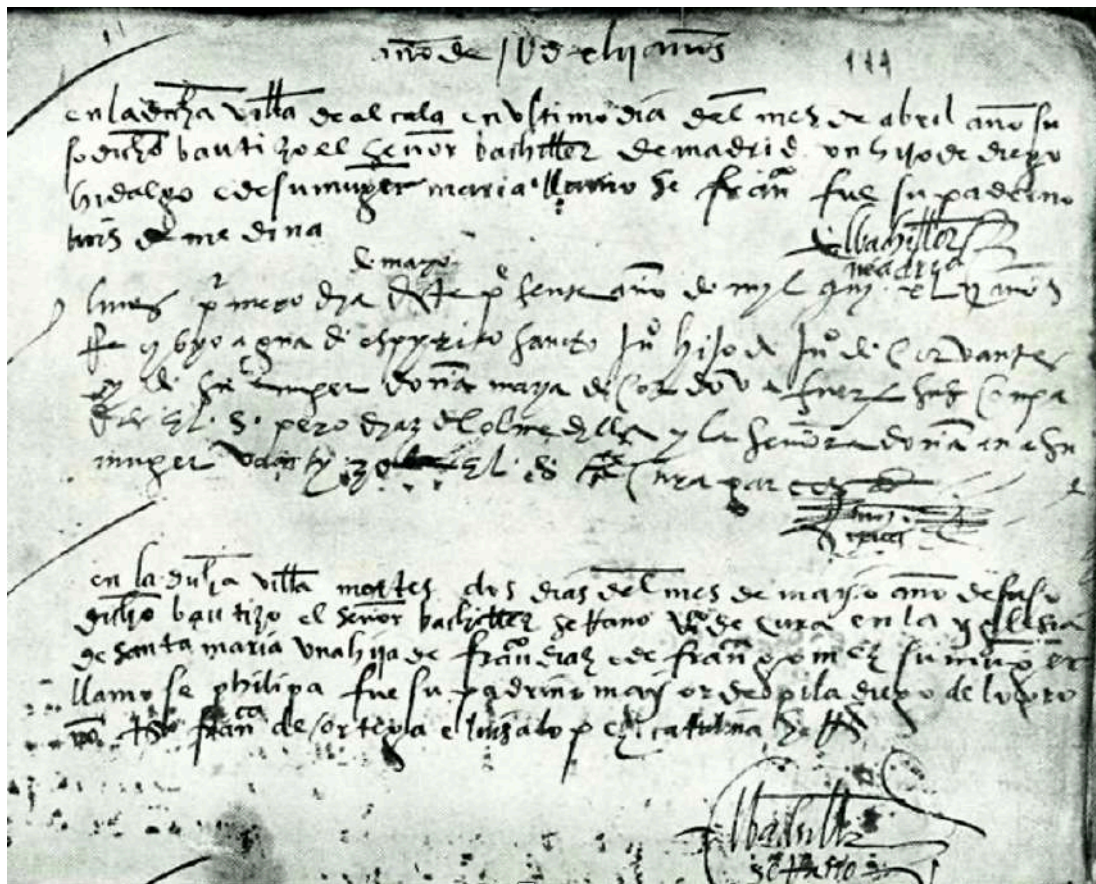 año de 1U d xlij años
111
en la dcha villa de alcala en ultimo dia del mes de abril año su
so dicho bautizo el señor bachiller de madrid un hijo de diego
hidalgo e de su muger maria llamo se fran fue su padrino
luis de medina
el bachiller
madrid
de mayo
lunes pmero dia deste psente año de myl qui xl ij años
Rybyo agua di espyrito santo Juº hijo de Juº di Cervantes
y di su muger doña maya di Cordova fuero sus Conpa
dres El S. pero dyaz dl olmedylla y la señora doña ana su
muger El S Cura
en la dicha villa martes dos dias del mes de mayo año de suso
dicho bautizo el señor bachiller serrano de cura en la yglesia
de santa maria una hija de fran diaz e de fran gomez su muger
llamo se philipa fue su padrino mayor de la pila diego de
fran de ortega e
bachiller
serrano